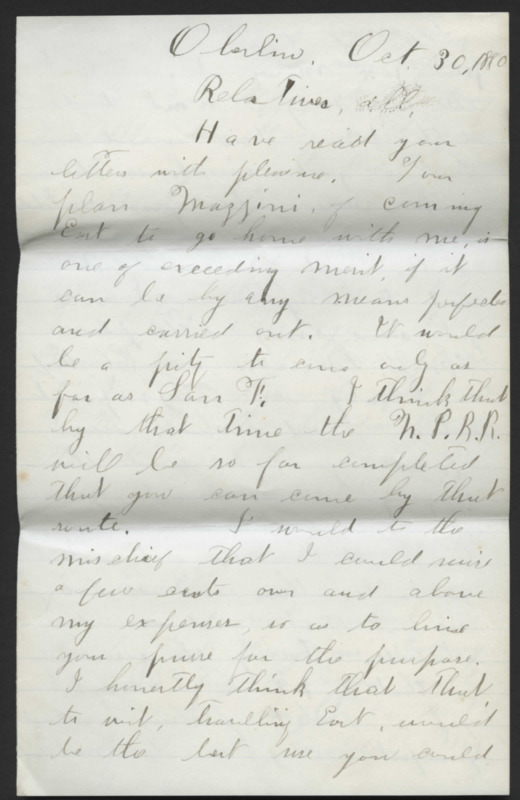 Oberlin. Oct. 30, 1880
Relatives, all,
Have read your
letters with pleasure. Your
plan Mazzini, of coming
East to go home with me, is
one of exceeding merit, if it
can be by any means perfected
and carried out. It would
be a pity to come only as
far as San F. I think that
by that time the N.P.R.R.
will be so far completed
that you can come by that
route. I would to the
mischief that I could raise
a few cents over and above
my expenses, so as to line
your purse for the purpose.
I honestly think that that
to visit, travelling East, would
be the best use you could